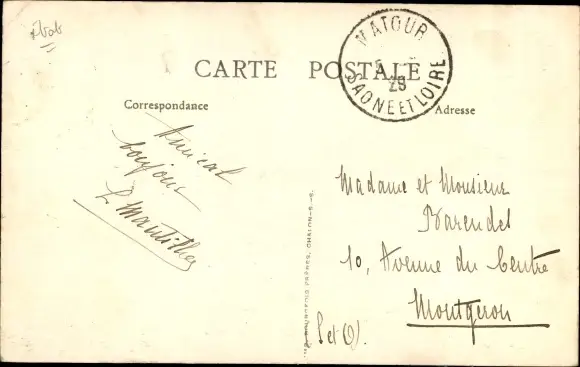 MATOUR
29
SAONE ET LOIRE
CARTE POSTALE
Correspondance
Adresse
Amical
bonjour
Madame et Monsieur
Barendet
10, Avenue du Centre
Montgeron
S et O.
FRÈRES, CHALON-S-S.